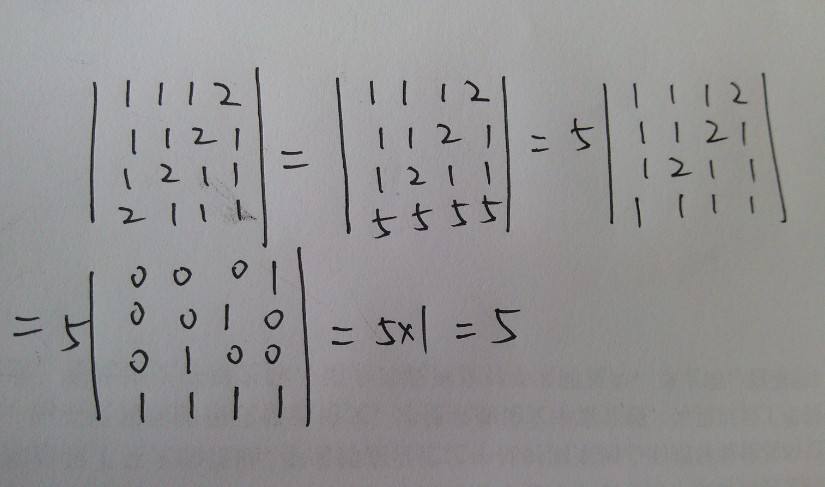 | 1 1 1 2 | = | 1 1 1 2 | = 5 | 1 1 1 2 |
| 1 1 2 1 | | 1 1 2 1 | | 1 1 2 1 |
| 1 2 1 1 | | 1 2 1 1 | | 1 2 1 1 |
| 2 1 1 1 | | 5 5 5 5 | | 1 1 1 1 |
= 5 | 0 0 0 1 | = 5×1 = 5
| 0 0 1 0 |
| 0 1 0 0 |
| 1 1 1 1 |